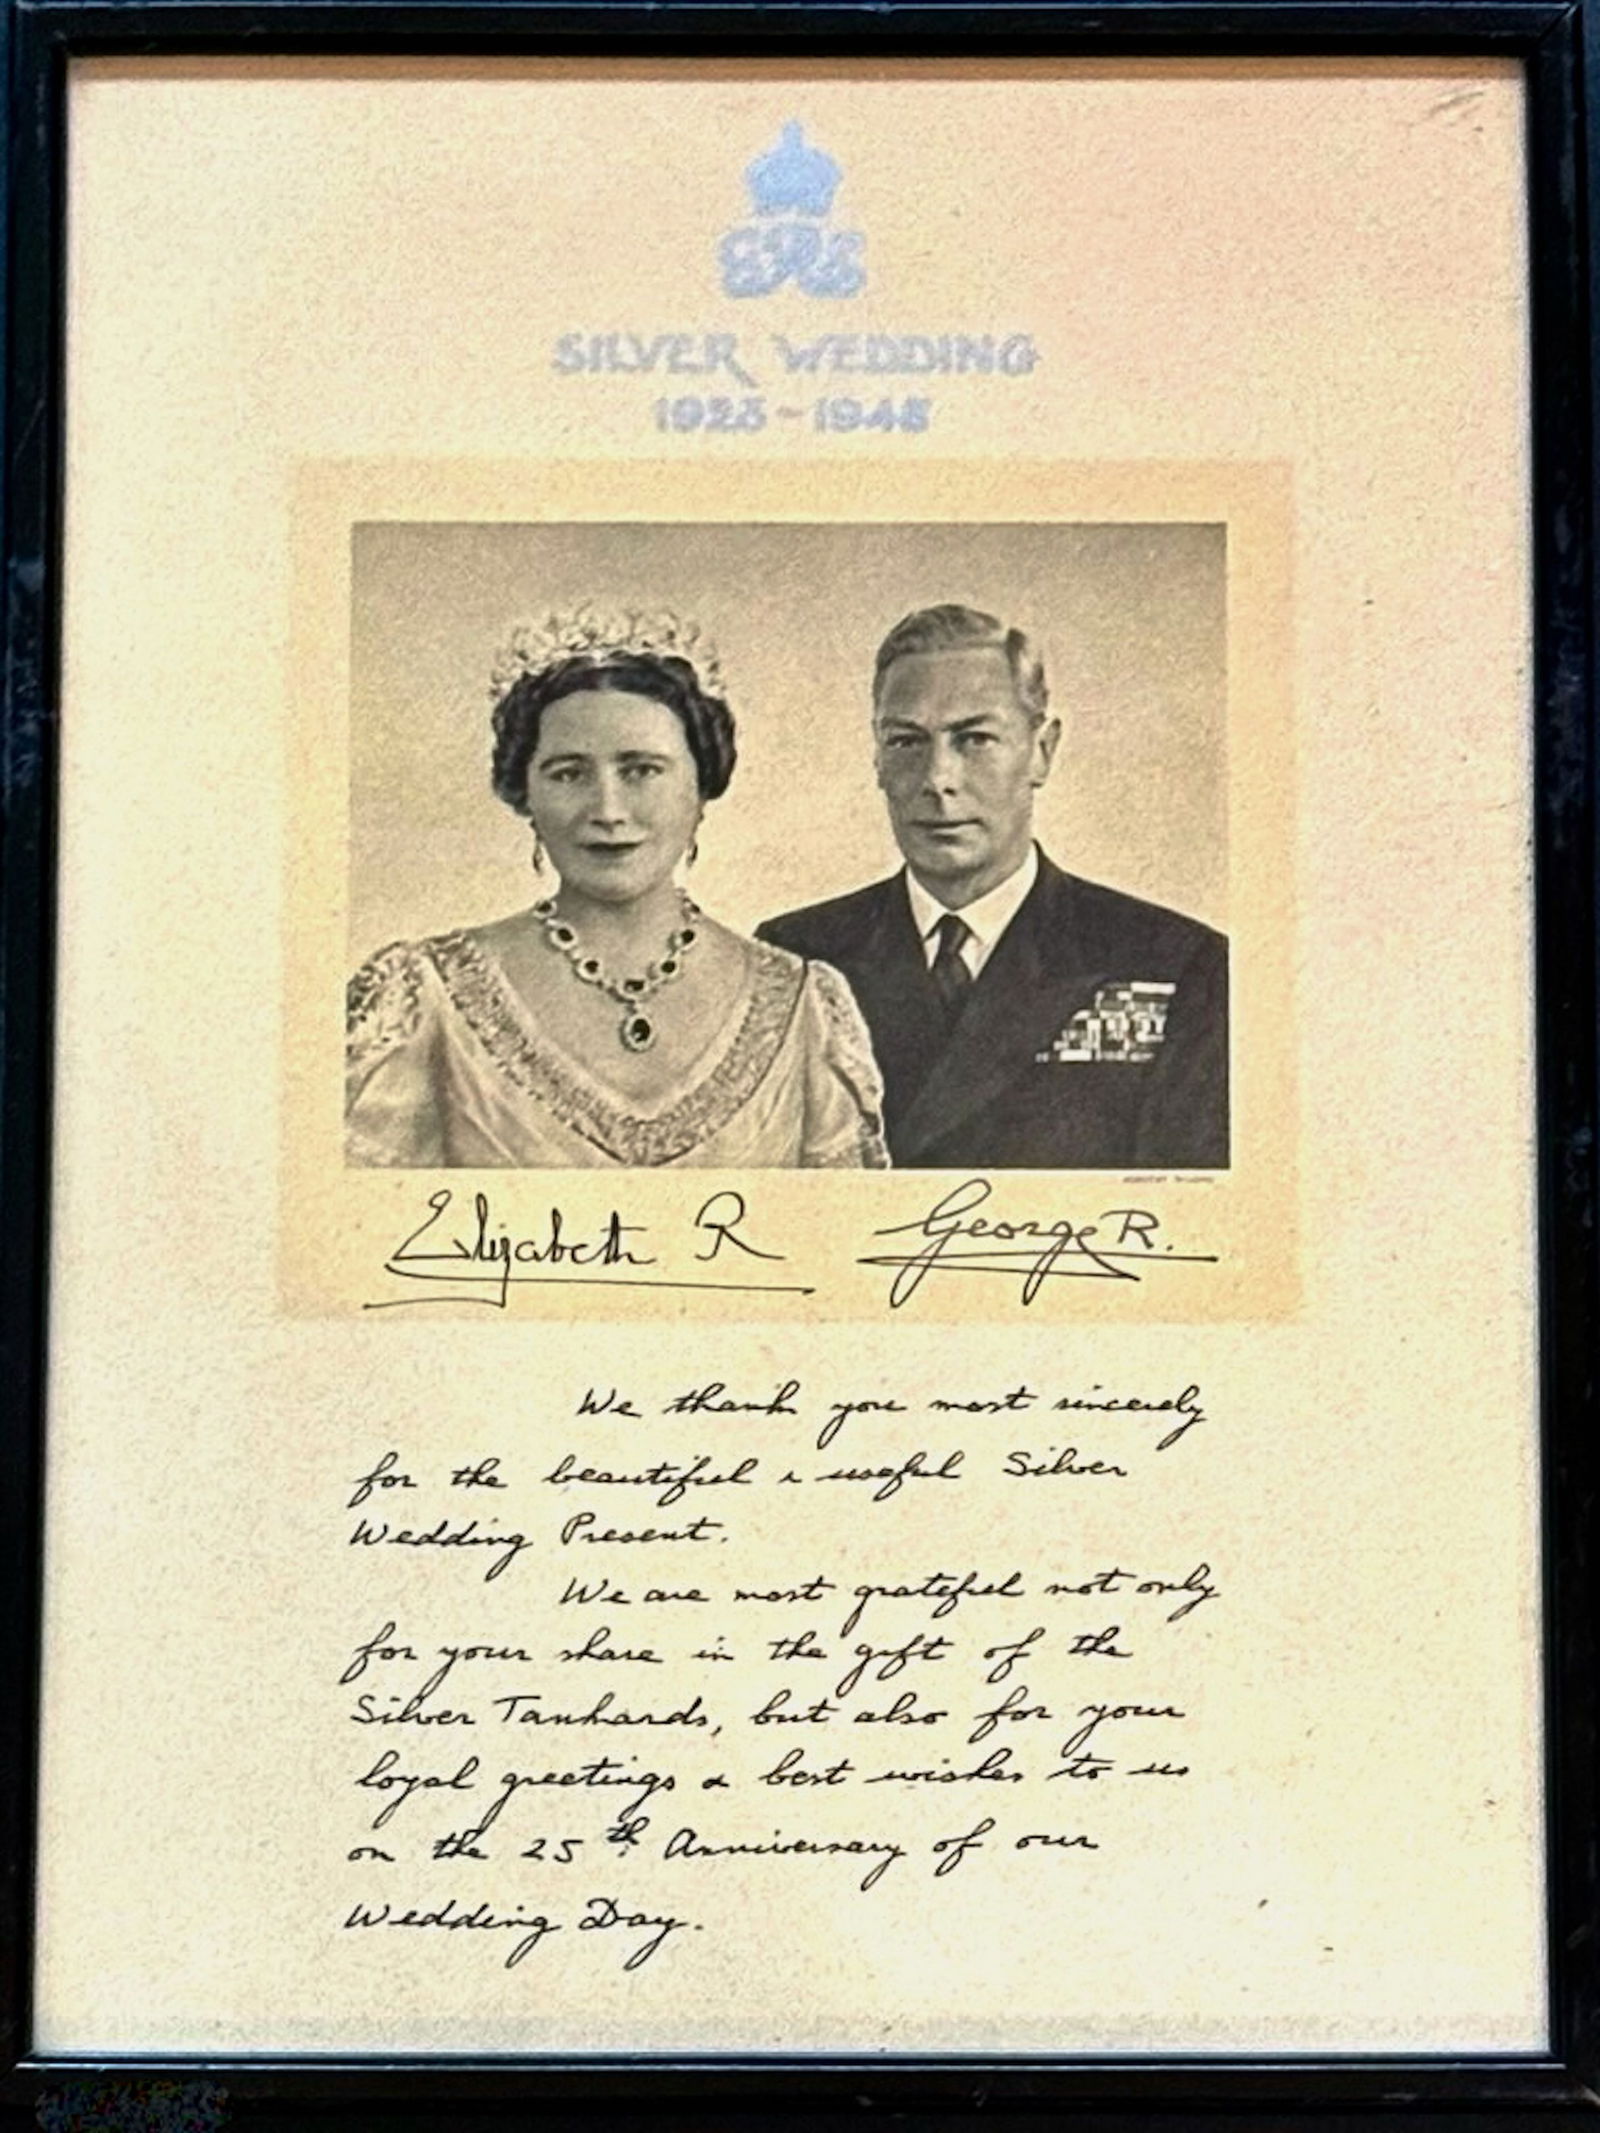 SILVER WEDDING
1923-1948
Elizabeth R George R.
We thank you most sincerely
for the beautiful & useful Silver
Wedding Present.
We are most grateful not only
for your share in the gift of the
Silver Tankards, but also for your
loyal greetings & best wishes to us
on the 25th Anniversary of our
Wedding Day.